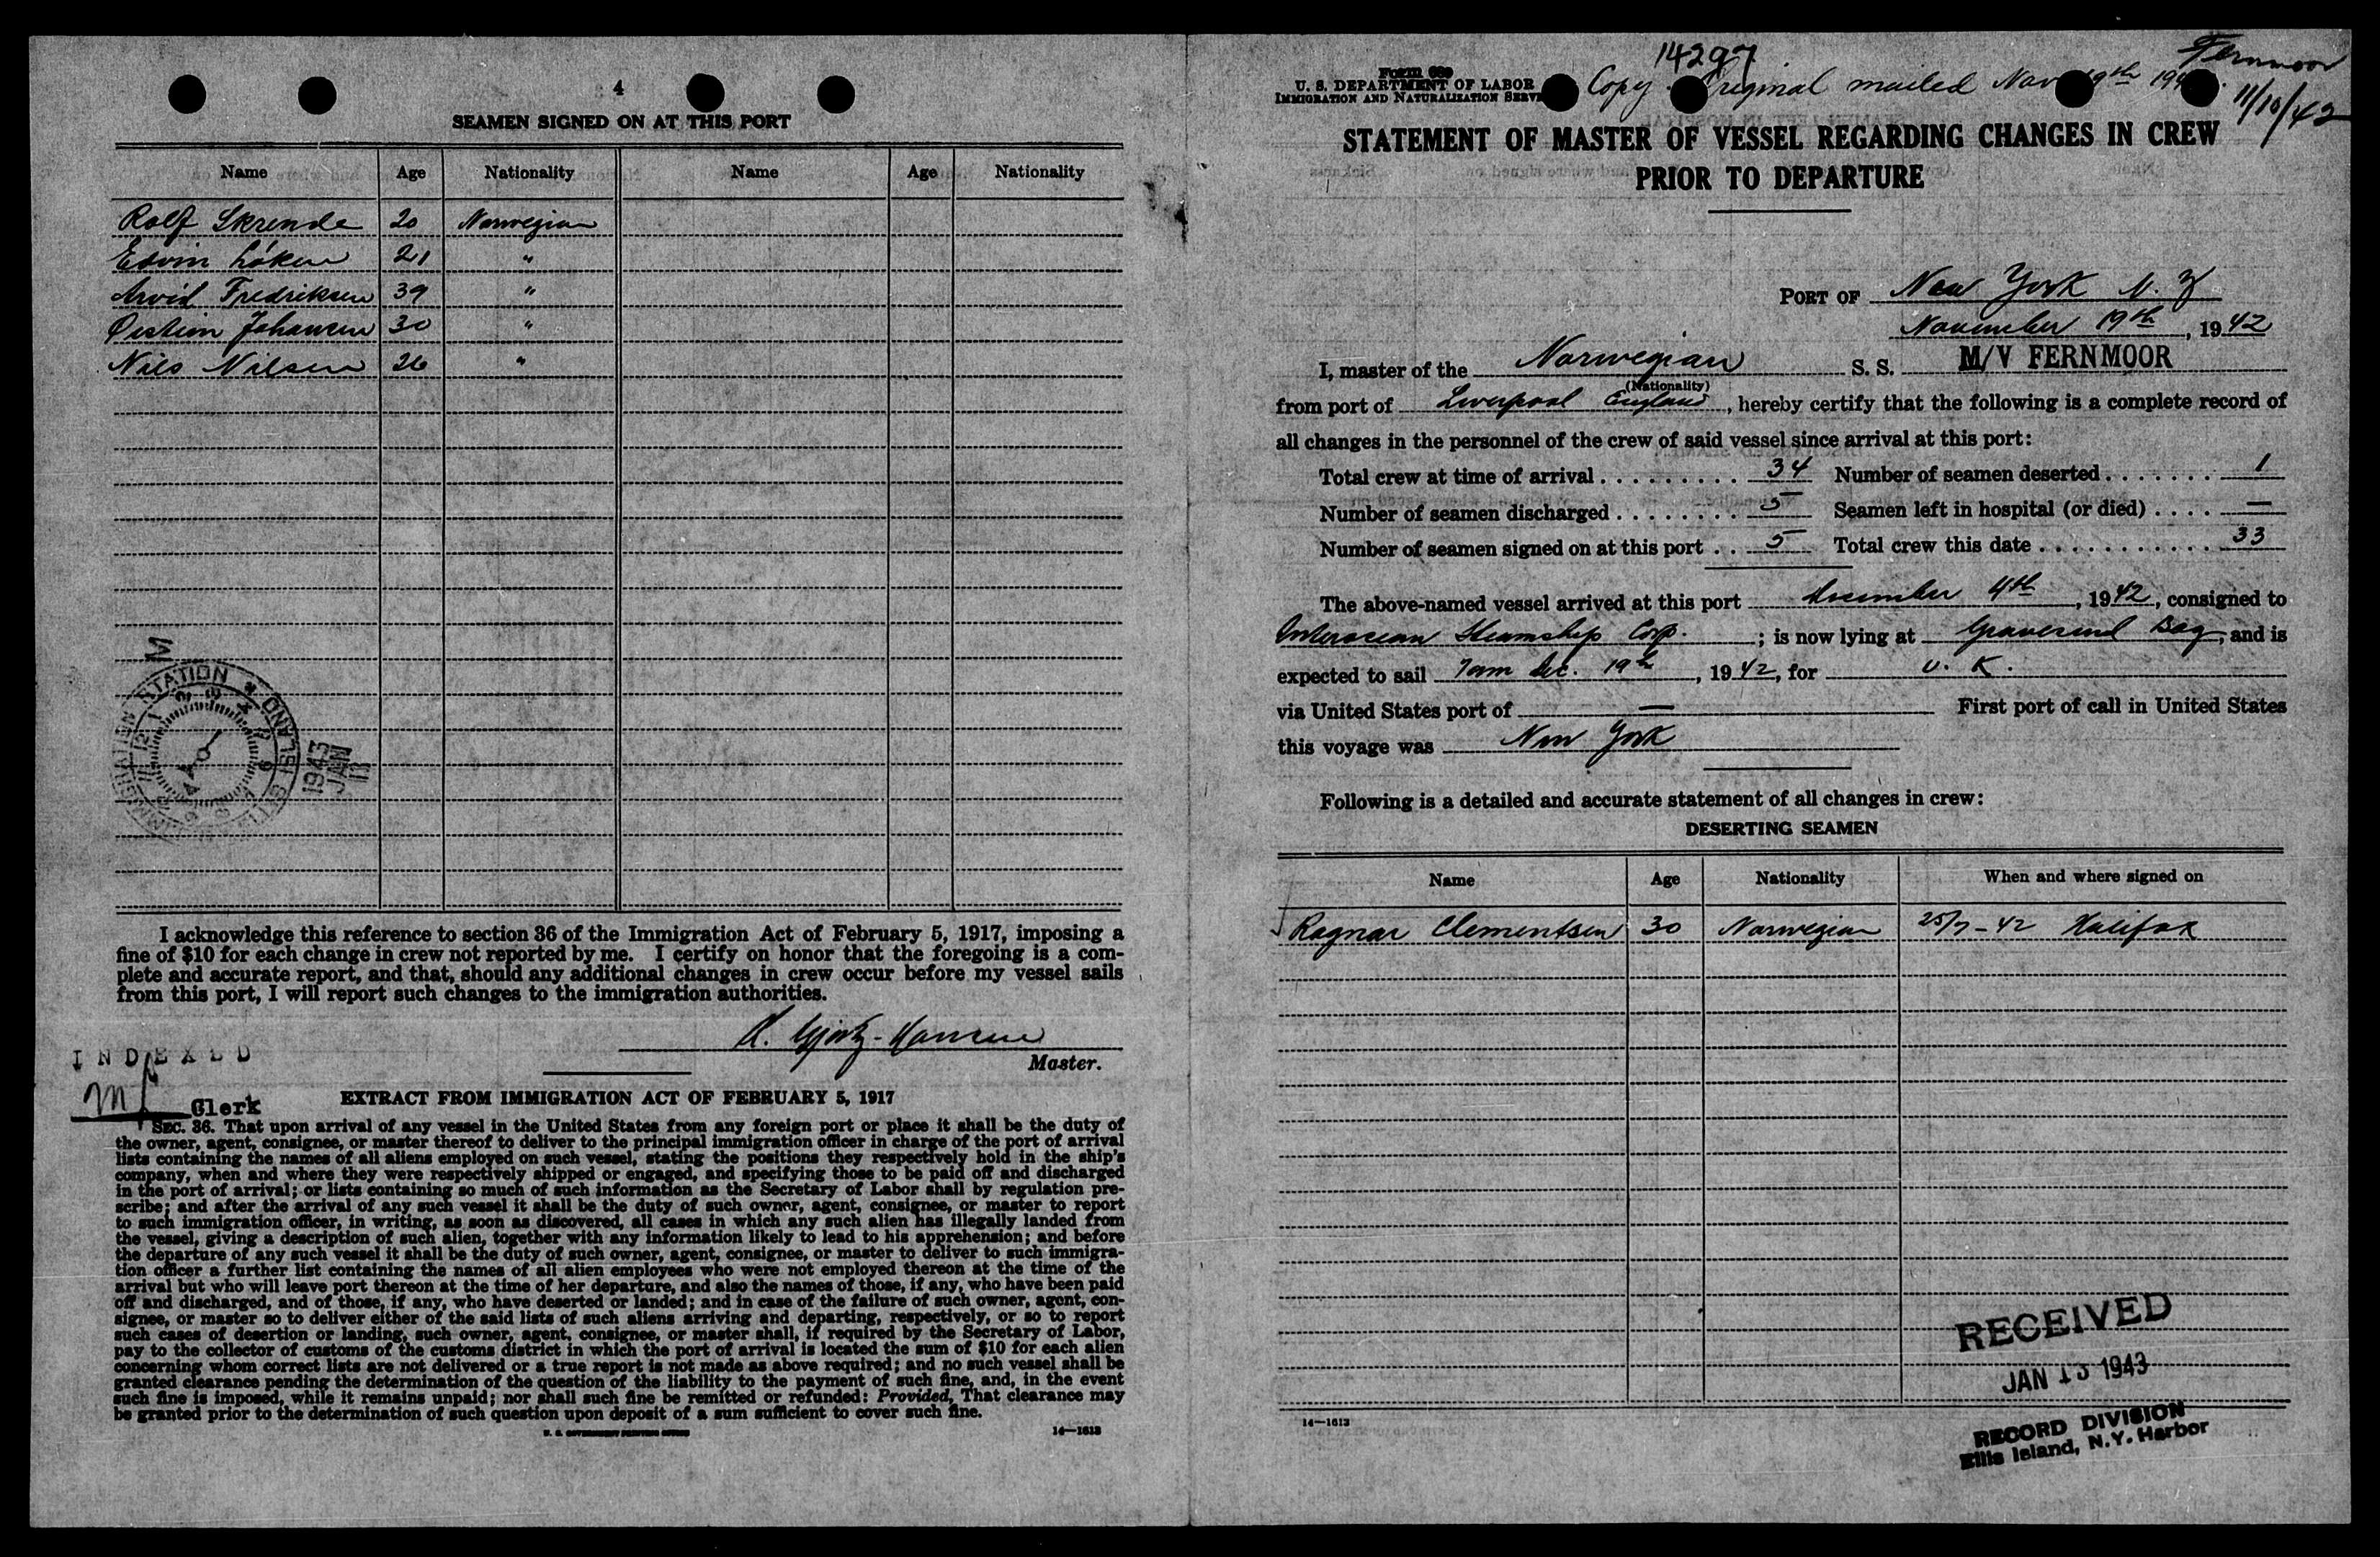 4
SEAMEN SIGNED ON AT THIS PORT
Name Age Nationality Name Age Nationality
Rolf Skrende 20 Norwegian
Edvin Løken 21 "
Arvid Fredriksen 39 "
Øistein Johansen 30 "
Nils Nilsen 26 "
M
IMMIGRATION STATION ELLIS ISLAND
1943
JAN
13
I acknowledge this reference to section 36 of the Immigration Act of February 5, 1917, imposing a
fine of $10 for each change in crew not reported by me. I certify on honor that the foregoing is a com-
plete and accurate report, and that, should any additional changes in crew occur before my vessel sails
from this port, I will report such changes to the immigration authorities.
Master.
INDEXED
Clerk
EXTRACT FROM IMMIGRATION ACT OF FEBRUARY 5, 1917
SEC. 36. That upon arrival of any vessel in the United States from any foreign port or place it shall be the duty of
the owner, agent, consignee, or master thereof to deliver to the principal immigration officer in charge of the port of arrival
lists containing the names of all aliens employed on such vessel, stating the positions they respectively hold in the ship's
company, when and where they were respectively shipped or engaged, and specifying those to be paid off and discharged
in the port of arrival; or lists containing so much of such information as the Secretary of Labor shall by regulation pre-
scribe; and after the arrival of any such vessel it shall be the duty of such owner, agent, consignee, or master to report
to such immigration officer, in writing, as soon as discovered, all cases in which any such alien has illegally landed from
the vessel, giving a description of such alien, together with any information likely to lead to his apprehension; and before
the departure of any such vessel it shall be the duty of such owner, agent, consignee, or master to deliver to such immigra-
tion officer a further list containing the names of all alien employees who were not employed thereon at the time of the
arrival but who will leave port thereon at the time of her departure, and also the names of those, if any, who have been paid
off and discharged, and of those, if any, who have deserted or landed; and in case of the failure of such owner, agent, con-
signee, or master so to deliver either of the said lists of such aliens arriving and departing, respectively, or so to report
such cases of desertion or landing, such owner, agent, consignee, or master shall, if required by the Secretary of Labor,
pay to the collector of customs of the customs district in which the port of arrival is located the sum of $10 for each alien
concerning whom correct lists are not delivered or a true report is not made as above required; and no such vessel shall be
granted clearance pending the determination of the question of the liability to the payment of such fine, and, in the event
such fine is imposed, while it remains unpaid; nor shall such fine be remitted or refunded: Provided, That clearance may
be granted prior to the determination of such question upon deposit of a sum sufficient to cover such fine.
U. S. GOVERNMENT PRINTING OFFICE 14—1613
14297
Fernmoor
11/10/42
Form 689
U. S. DEPARTMENT OF LABOR
IMMIGRATION AND NATURALIZATION SERVICE
Copy. Original mailed Nov 19th 194
STATEMENT OF MASTER OF VESSEL REGARDING CHANGES IN CREW
PRIOR TO DEPARTURE
PORT OF New York N. Y
November 19th, 1942
I, master of the Norwegian S. S. M/V FERNMOOR
(Nationality)
from port of Liverpool England, hereby certify that the following is a complete record of
all changes in the personnel of the crew of said vessel since arrival at this port:
Total crew at time of arrival . . . . . . . . . 34 Number of seamen deserted . . . . . . . 1
Number of seamen discharged . . . . . . . . 5 Seamen left in hospital (or died) . . . . —
Number of seamen signed on at this port . . 5 Total crew this date . . . . . . . . . . . . 33
The above-named vessel arrived at this port 4th, 1942, consigned to
Interocean Steamship Corp. ; is now lying at Gravesend Bay, and is
expected to sail 7am Dec. 19th, 1942, for U. K.
via United States port of — First port of call in United States
this voyage was New York
Following is a detailed and accurate statement of all changes in crew:
DESERTING SEAMEN
Name Age Nationality When and where signed on
Ragnar Clementsen 30 Norwegian 25/7-42 Halifax
RECEIVED
JAN 13 1943
RECORD DIVISION
Ellis Island, N.Y. Harbor
14—1613